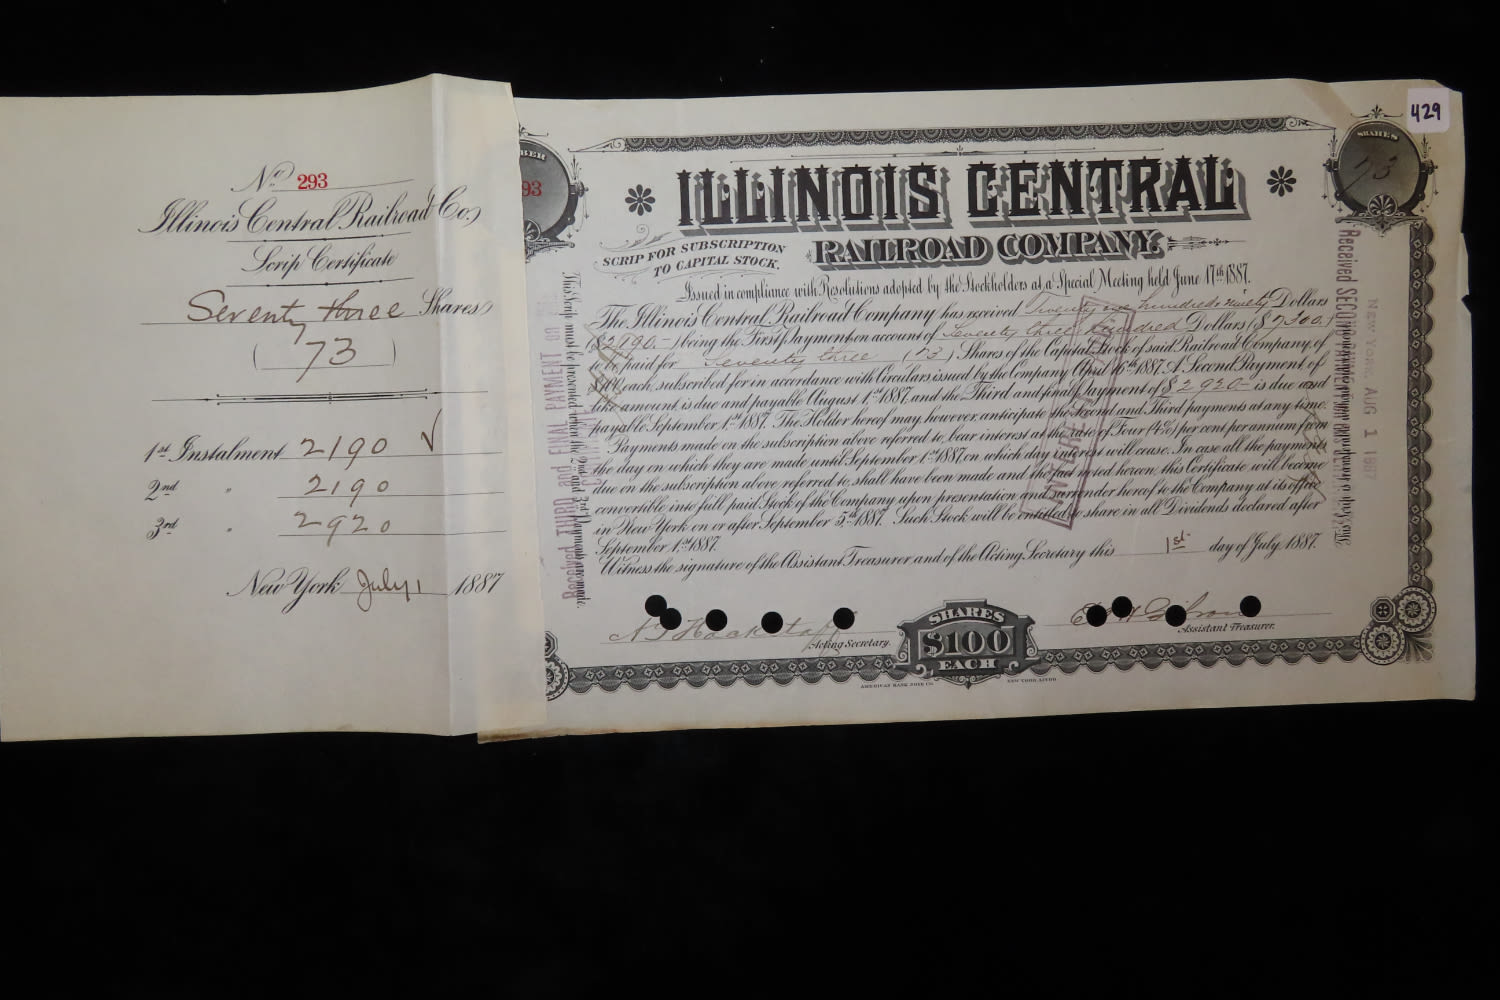 No 293
Illinois Central Railroad Co.
Scrip Certificate
Seventy three Shares
(73)
1st Instalment 2190 √
2nd " 2190
3rd " 2920
New York July 1 1887
429
BER
93
SHARES
73
ILLINOIS CENTRAL
RAILROAD COMPANY.
SCRIP FOR SUBSCRIPTION
TO CAPITAL STOCK.
Issued in compliance with Resolutions adopted by the Stockholders at a Special Meeting held June 17th 1887.
The Illinois Central Railroad Company has received Twenty one hundred & ninety Dollars
($2190.-) being the First Payment on account of Seventy three hundred Dollars ($7300.)
to be paid for Seventy three (73) Shares of the Capital Stock of said Railroad Company, of
$100 each, subscribed for in accordance with Circulars issued by the Company April 16th 1887. A Second Payment of
like amount is due and payable August 1st 1887, and the Third and final Payment of $2920- is due and
payable September 1st 1887. The Holder hereof may however anticipate the Second and Third payments at any time.
Payments made on the subscription above referred to, bear interest at the rate of Four (4%) per cent per annum from
the day on which they are made until September 1st 1887, on which day interest will cease. In case all the payments
due on the subscription above referred to, shall have been made and the fact noted hereon, this Certificate will become
convertible into full paid Stock of the Company upon presentation and surrender hereof to the Company at its office
in New York on or after September 5th 1887. Such Stock will be entitled to share in all Dividends declared after
September 1st 1887.
Witness the signature of the Assistant Treasurer and of the Acting Secretary this 1st day of July 1887.
Acting Secretary.
SHARES
$100
EACH
Assistant Treasurer.
AMERICAN BANK NOTE CO.
NEW YORK
Received THIRD and FINAL PAYMENT on
Received SECOND PAYMENT
NEW YORK, AUG 1 1887